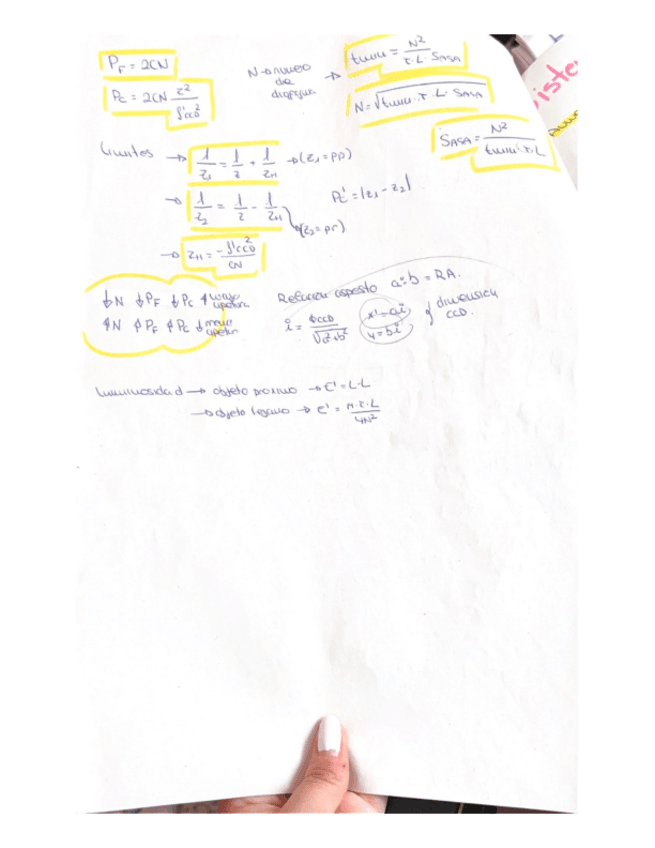 P_F = 2CN
P_C = 2CN z² / f'cco²
N → numero de diafragma →
t_min = N² / τ·L·S_ASA
N = √(t_min·τ·L·S_ASA)
S_ASA = N² / t_min·τ·L
iste
Limites → 1/z₁ = 1/z + 1/z_H → (z₁ = pp)
→ 1/z₂ = 1/z - 1/z_H → (z₂ = pr)
P_C' = |z₁ - z₂|
→ z_H = -f'cco² / CN
↓N ↓P_F ↓P_C ↑ apertura
↑N ↑P_F ↑P_C ↓ menor apertura
Relacion aspecto a:b = RA.
i = ΦCCD / √(a²+b²)
x' = ai
y = bi
dimension CCD.
Luminosidad → objeto proximo → E' =
→ objeto lejano → E' = π·τ·L / 4N²